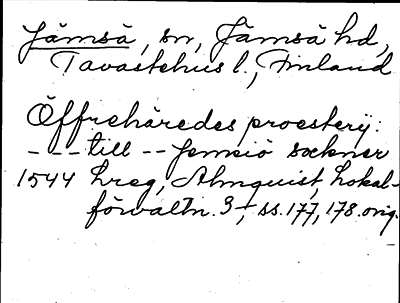 Jämsä, sn, Jämsä hd,
Tavastehus l., Finland
Öffrehäredes proesterij:
- - - till - - Jemsiö sockner
1544 hreg, Almquist, Lokal-
förvaltn. 3, ss. 177, 178. orig.